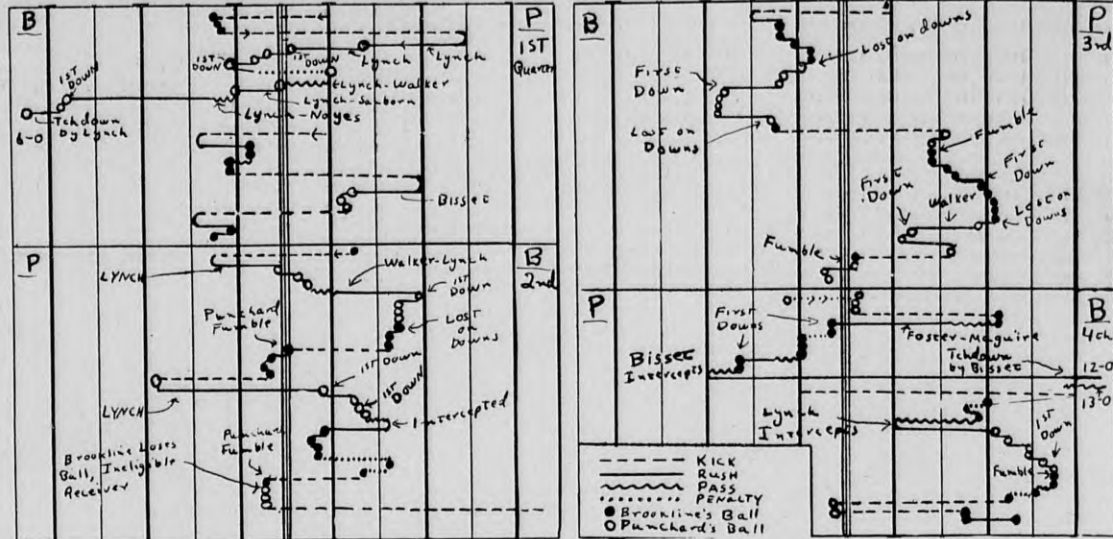 B
P
1ST
Quarter
1ST DOWN
1ST DOWN
1ST DOWN
Lynch
Lynch
Lynch-Walker
Lynch-Sanborn
Lynch-Noyes
Tchdown
By Lynch
6-0
Bisset
P
B
2nd
LYNCH
Walker-Lynch
1ST DOWN
Punchard
Fumble
LOST
on
DOWNS
1ST DOWN
LYNCH
1ST DOWN
Intercepted
Punchard
Fumble
Brookline Loses
Ball, Ineligible
Receiver
B
P
3rd
Lost on downs
First
Down
Lost on
Downs
Fumble
First
Down
First
Down
Walker
Lost on
Downs
Fumble
P
B
4th
First
Downs
Foster-Maguire
Bisset
Intercepts
Tchdown
by Bisset
12-0
13-0
Lynch
Intercepts
1ST
Down
Fumble
KICK
RUSH
PASS
PENALTY
Brookline's Ball
Punchard's Ball